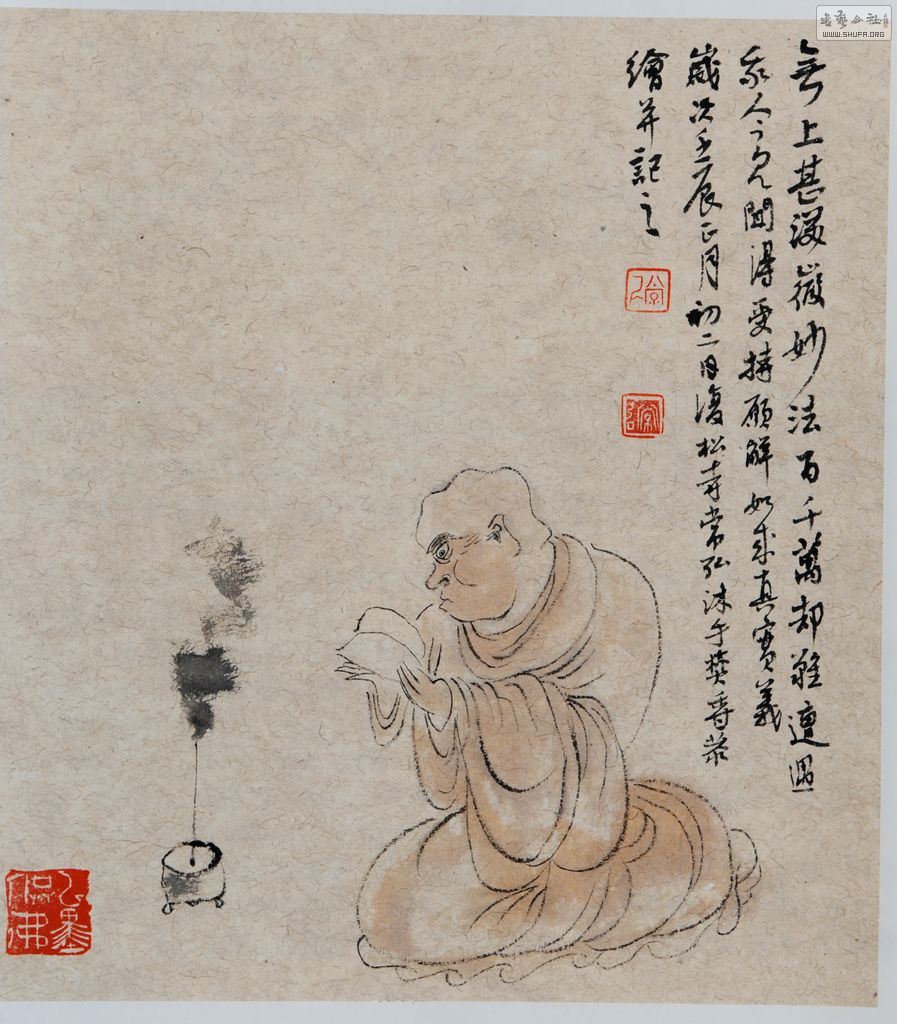 無上甚深微妙法百千萬却難遭遇
我今見聞得受持願解如來真實義
歲次壬辰正月初二日復松寺常弘沐手焚香恭
繪并記之
書藝公社
WWW.SHUFA.ORG